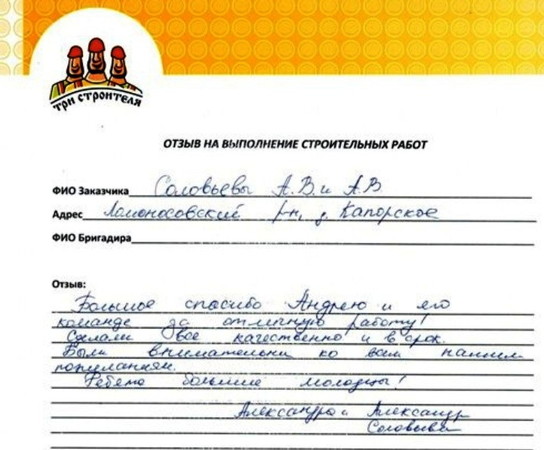 три строителя
ОТЗЫВ НА ВЫПОЛНЕНИЕ СТРОИТЕЛЬНЫХ РАБОТ
ФИО Заказчика Соловьевы А.В. и А.В
Адрес Ломоносовский р-н, д. Капорское
ФИО Бригадира
Отзыв:
Большое спасибо Андрею и его
команде за отличную работу!
Сделали все качественно и в срок.
Были внимательны ко всем нашим
пожеланиям.
Ребята большие молодцы!
Александра и Александр
Соловьевы